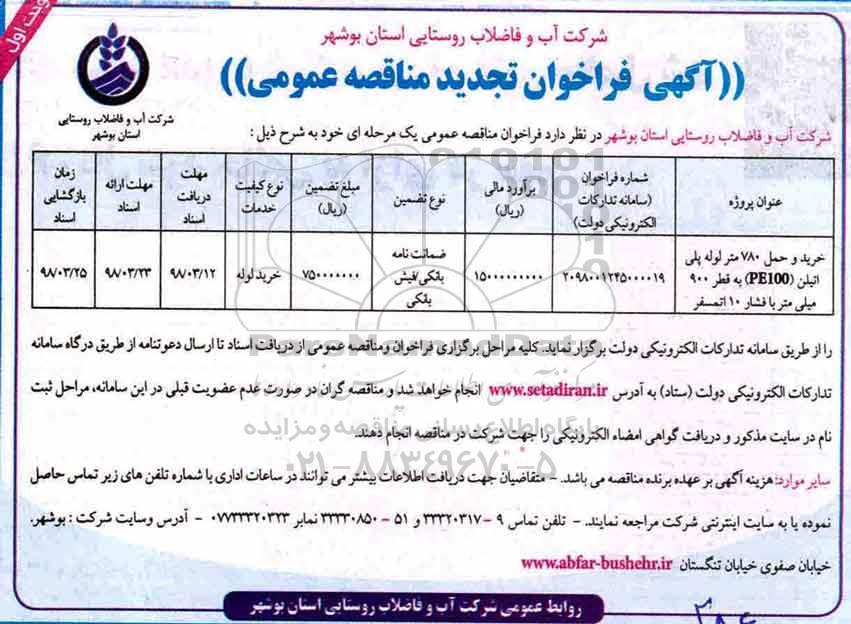 نوبت اول
شرکت آب و فاضلاب روستایی استان بوشهر
((آگهی فراخوان تجدید مناقصه عمومی))
شرکت آب و فاضلاب روستایی
استان بوشهر
شرکت آب و فاضلاب روستایی استان بوشهر در نظر دارد فراخوان مناقصه عمومی یک مرحله ای خود به شرح ذیل :
عنوان پروژه
شماره فراخوان
(سامانه تدارکات
الکترونیکی دولت)
برآورد مالی
(ریال)
نوع تضمین
مبلغ تضمین
(ریال)
نوع کیفیت
خدمات
مهلت
دریافت
اسناد
مهلت ارائه
اسناد
زمان
بازگشایی
اسناد
خرید و حمل ۷۸۰ متر لوله پلی
اتیلن (PE100) به قطر ۹۰۰
میلی متر با فشار ۱۰ اتمسفر
۲۰۹۸۰۰۱۲۴۵۰۰۰۰۱۹
۱۵۰۰۰۰۰۰۰۰۰
ضمانت نامه
بانکی/فیش
بانکی
۷۵۰۰۰۰۰۰۰
خرید لوله
۹۸/۰۳/۱۲
۹۸/۰۳/۲۳
۹۸/۰۳/۲۵
را از طریق سامانه تدارکات الکترونیکی دولت برگزار نماید. کلیه مراحل برگزاری فراخوان ومناقصه عمومی از دریافت اسناد تا ارسال دعوتنامه از طریق درگاه سامانه
تدارکات الکترونیکی دولت (ستاد) به آدرس www.setadiran.ir انجام خواهد شد و مناقصه گران در صورت عدم عضویت قبلی در این سامانه، مراحل ثبت
نام در سایت مذکور و دریافت گواهی امضاء الکترونیکی را جهت شرکت در مناقصه انجام دهند.
سایر موارد: هزینه آگهی بر عهده برنده مناقصه می باشد. - متقاضیان جهت دریافت اطلاعات بیشتر می توانند در ساعات اداری با شماره تلفن های زیر تماس حاصل
نموده یا به سایت اینترنتی شرکت مراجعه نمایند. - تلفن تماس ۹ - ۳۳۳۲۰۳۱۷ و ۵۱ - ۳۳۳۳۰۸۵۰ نمابر ۰۷۷۳۳۳۲۰۳۲۳ - آدرس وسایت شرکت : بوشهر.
خیابان صفوی خیابان تنگستان www.abfar-bushehr.ir
روابط عمومی شرکت آب و فاضلاب روستایی استان بوشهر
ParsNamadData
پایگاه اطلاع رسانی مناقصه و مزایده
۰۲۱-۸۸۳۴۹۶۷۰-۵